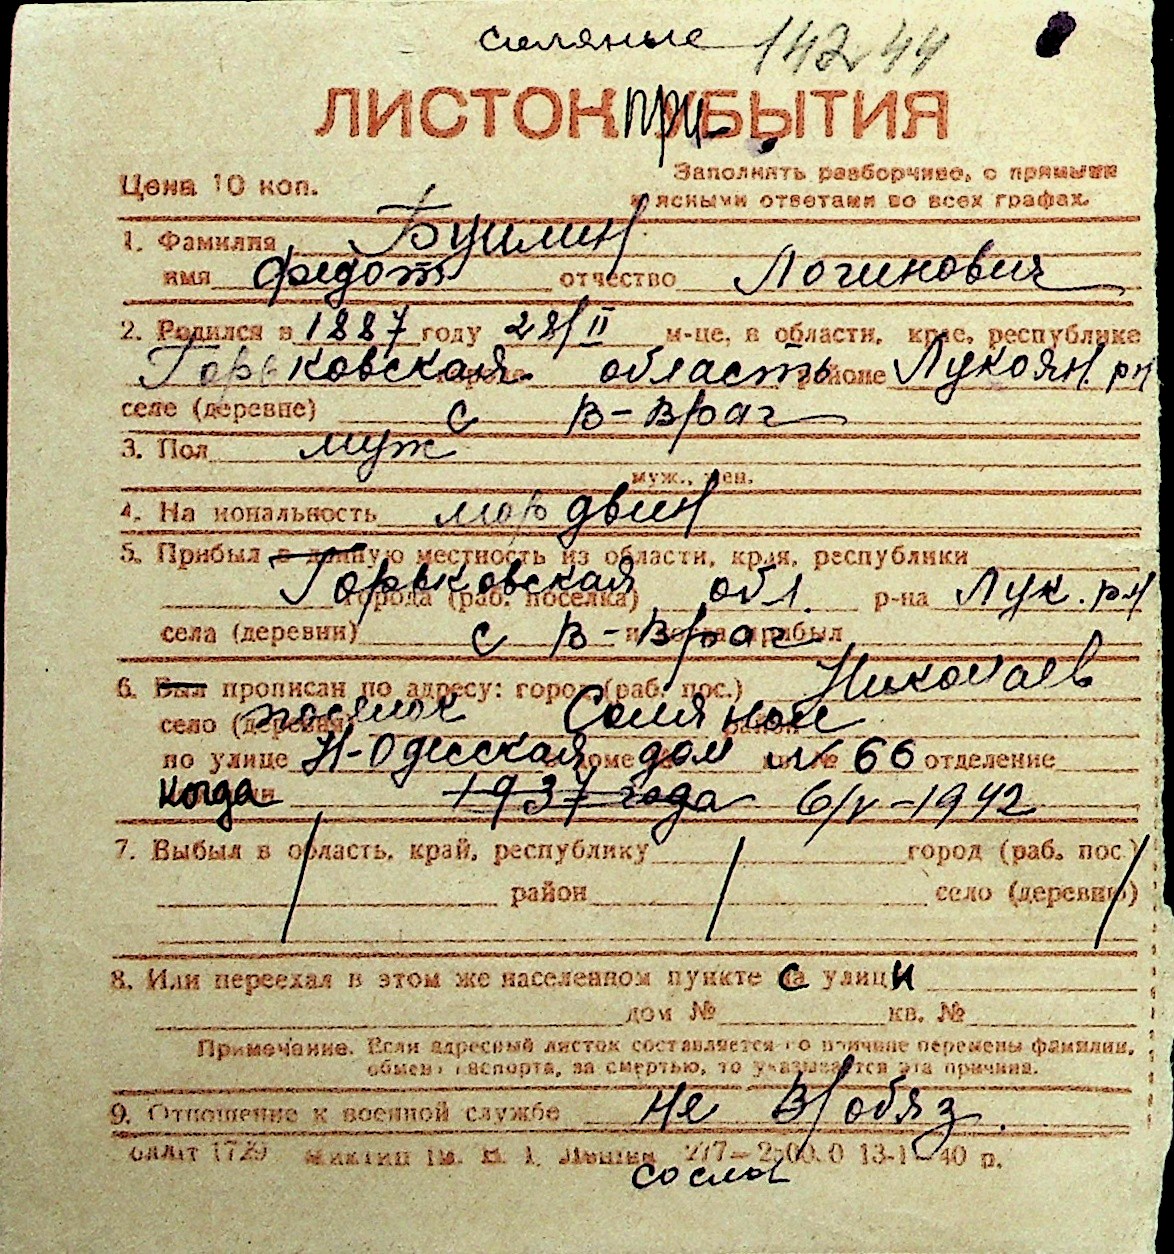 соляные 142 44
ЛИСТОК ПРИБЫТИЯ
Цена 10 коп.
Заполнять разборчиво, с прямыми
и ясными ответами во всех графах.
1. Фамилия Бушлин
имя Федот отчество Логинович
2. Родился в 1887 году 28/II м-це, в области, крае, республике
Горьковская область районе Лукоян. рн
селе (деревне) с В-Враг
3. Пол муж
муж., жен.
4. Национальность мордвин
5. Прибыл в данную местность из области, края, республики
Горьковская города (раб. поселка) обл. р-на Лук. рн
села (деревни) с В-Враг и когда прибыл
6. Был прописан по адресу: город (раб. пос.) Николаев
село (деревня) поселок Соляной район
по улице Н-Одесская доме дом кв. № 66 отделение
когда 1937 года 6/V-1942
7. Выбыл в область, край, республику город (раб. пос.)
район село (деревню)
8. Или переехал в этом же населенном пункте с улици
дом № кв. №
Примечание. Если адресный листок составляется по причине перемены фамилии,
обмена паспорта, за смертью, то указывается эта причина.
9. Отношение к военной службе не в/обяз.
1729 277— 13-1—40 р.